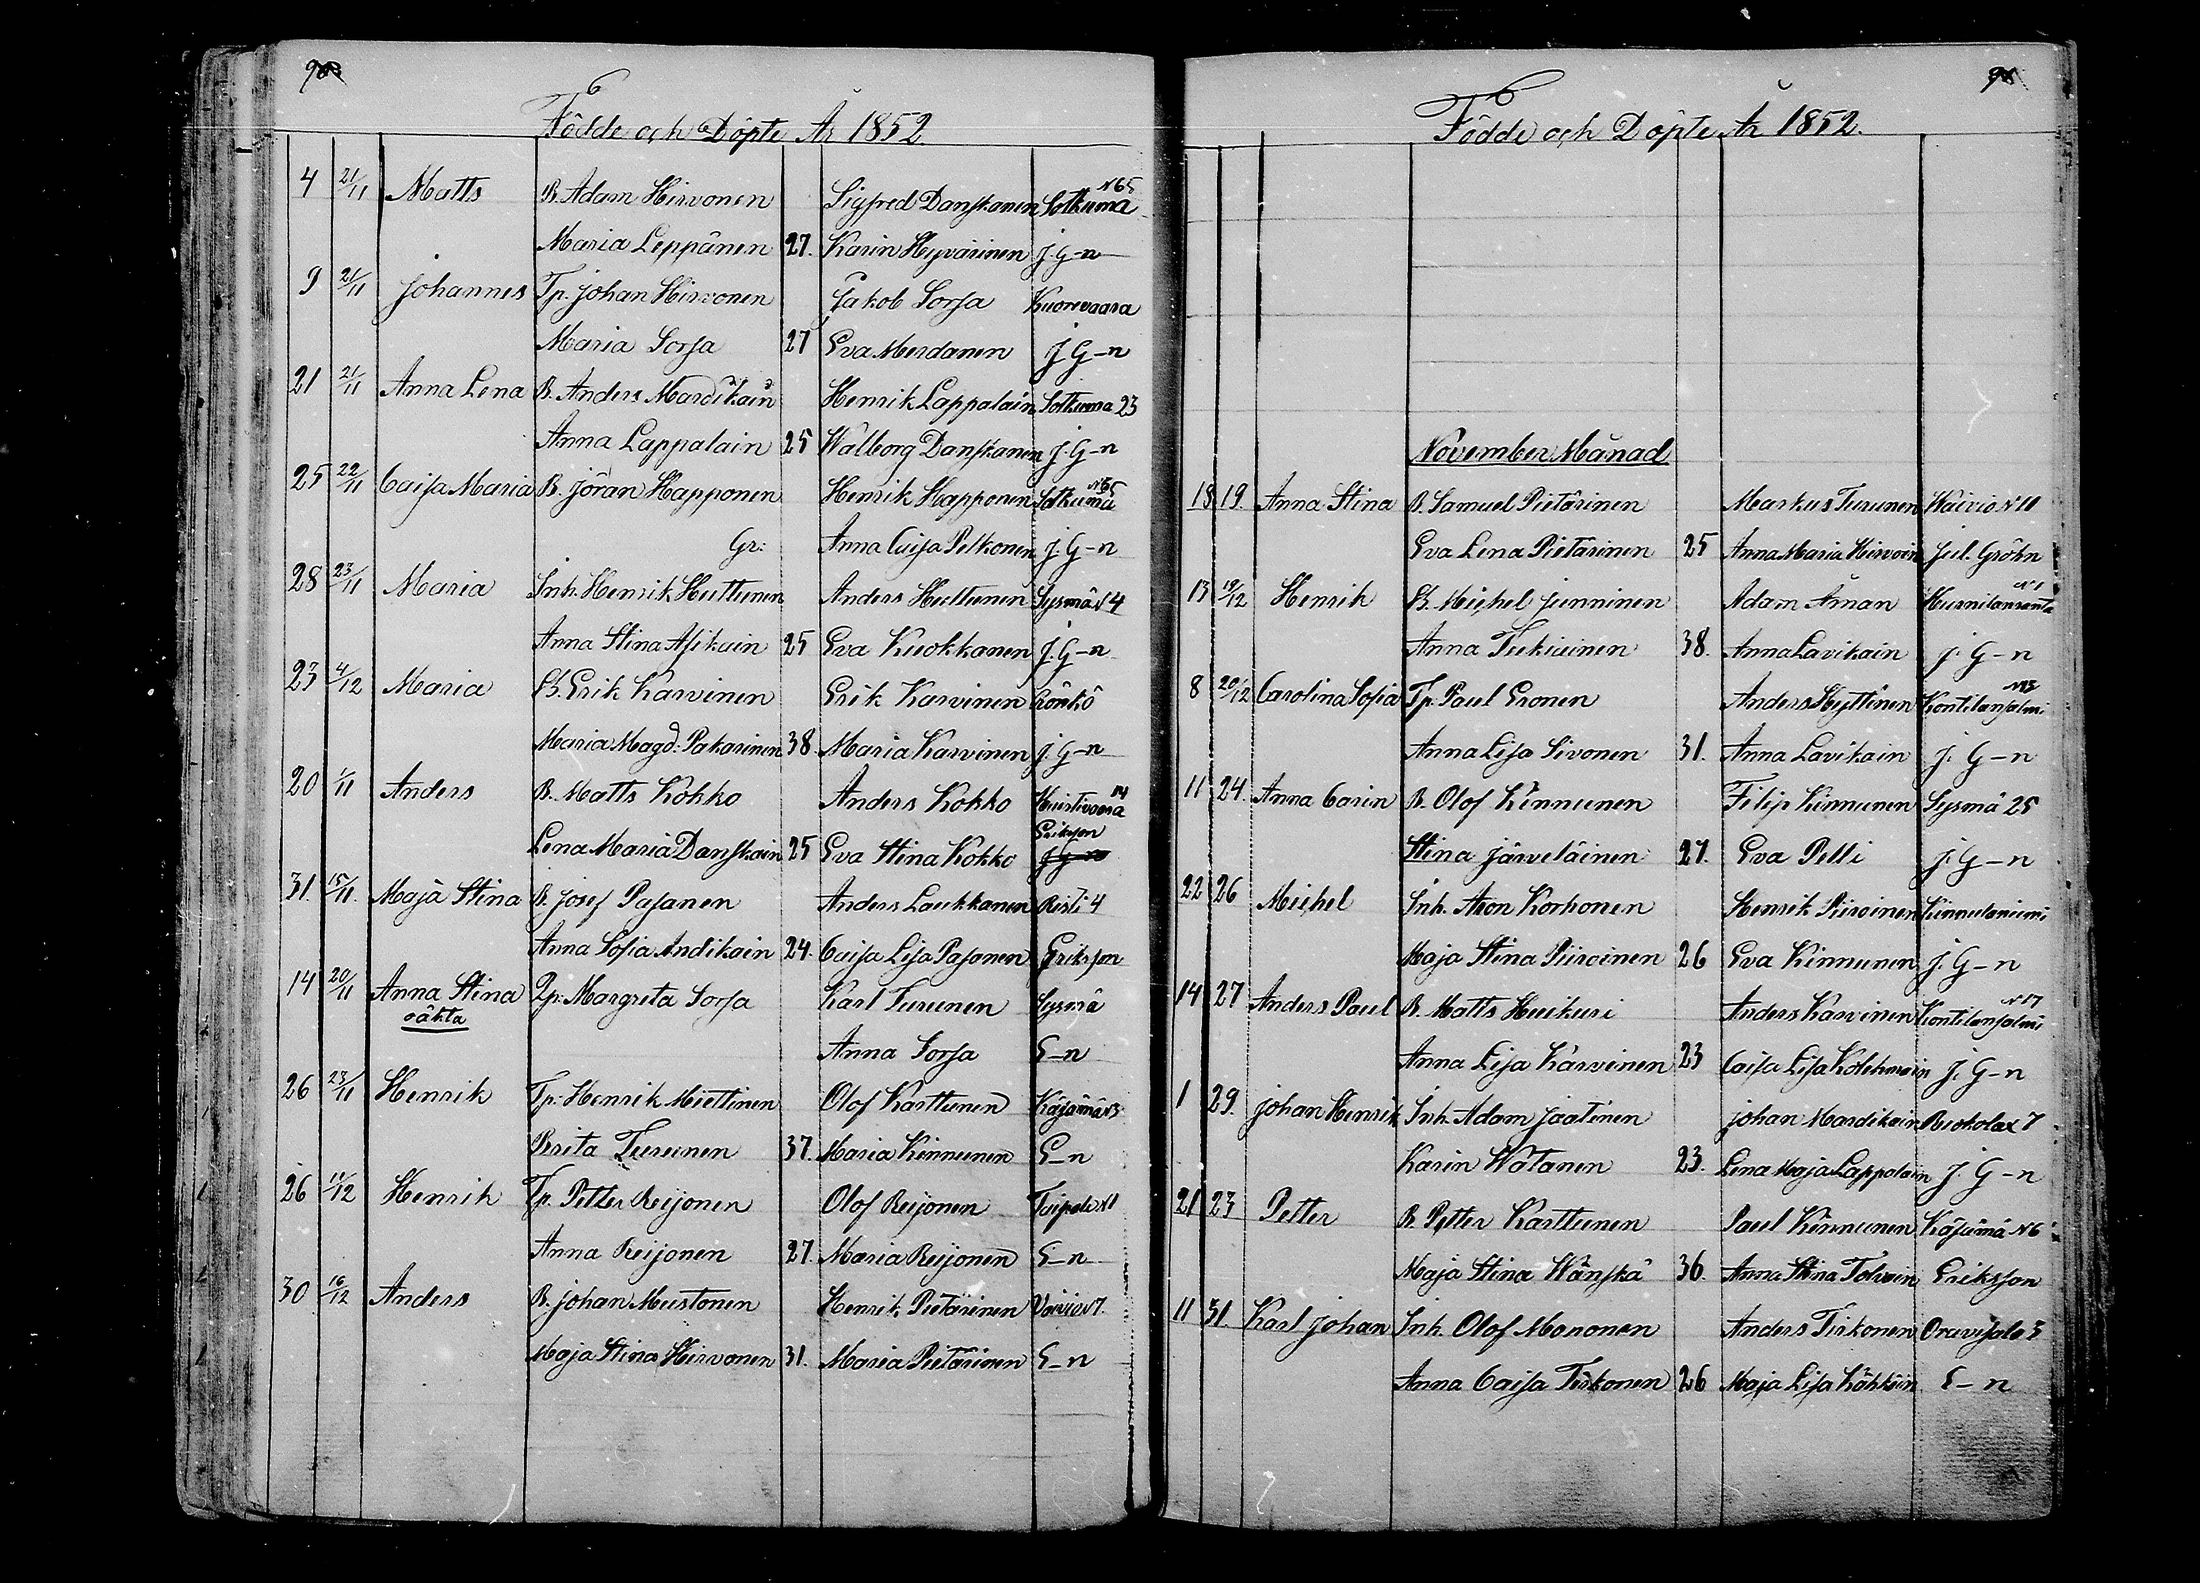 Födde och Döpte År 1852.
4 21/11 Matts B. Adam Hirvonen Sigfred Danskanen Sotkuma N65
Maria Leppänen 27. Karin Hyvärinen J. G-n
9 21/11 Johannes Tp. Johan Hirvonen Jakob Sorsa Kuorevaara
Maria Sorsa 27 Eva Merdanen J G-n
21 21/11 Anna Lena B. Anders Mardikain Henrik Lappalain Sotkuma 23
Anna Lappalain 25 Walborg Danskanen J. G-n
25 22/11 Caisa Maria B. Jöran Happonen Henrik Happonen Sotkuma
Gr: Anna Caisa Pelkonen J. G-n
28 23/11 Maria Inh. Henrik Huttunen Anders Huttunen Sysmä N 4
Anna Stina Asikain 25 Eva Kuokkanen J. G-n
23 4/12 Maria Erik Karvinen Erik Karvinen
Maria Magd: Pakarinen 38. Maria Karvinen J. G-n
20 1/11 Anders B. Matts Kokko Anders Kokko 14
Lena Maria Danskain 25 Eva Stina Kokko Eriksson
31. 15/11. Maja Stina B. Josef Pasanen Anders Laukkanen Risti 4
Anna Sofia Andikain 24. Caisa Lisa Pasonen Eriksson
14 20/11 Anna Stina Margreta Sorsa Karl Turunen Sysmä
oäkta Anna Sorsa E-n
26 23/11 Henrik Tp. Henrik Miettinen Olof Karttunen Käsämä N3
Brita Turunen 37. Maria Kinnunen E-n
26 11/12 Henrik Tp. Petter Reijonen Olof Reijonen Taipale N1
Anna Reijonen 27. Maria Reijonen E-n
30 16/12 Anders B. Johan Mustonen Henrik Pietarinen Vaivio N7.
Maja Stina Hirvonen 31. Maria Pietarinen E-n
Födde och Döpte År 1852.
November Månad
18 19. Anna Stina B. Samuel Pietärinen Markus Turunen Waivio N 11
Eva Lena Pietärinen 25 Anna Maria Hirvoin Jul. Gröhn
13 19/12 Henrik Michel Junninen Adam Årnan N 1
Anna Tukiainen 38. Anna Lavikain J. G-n
8 20/12 Carolina Sofia Tp. Paul Eronen Anders Hyttinen Kontilansalmi N3
Anna Lisa Sivonen 31. Anna Lavikain J. G-n
11 24. Anna Carin B. Olof Kinnunen Filip Kinnunen Sysmä 25
Stina Järveläinen 27. Eva Pelli J. G-n
22 26 Michel Inh. Aron Korhonen Henrik Piiroinen Kinnulaniemi
Maja Stina Piiroinen 26 Eva Kinnunen J. G-n
14 27 Anders Paul B. Matts Huikuri Anders Karvinen Kontilansalmi N 17
Anna Lisa Karvinen 23 Caisa Lisa Kolehmain J. G-n
1 29. Johan Henrik Inh. Adam Jaatinen Johan Mardikain Ruokolax 7
Karin Watanen 23. Lena Maja Lappalain J. G-n
21 23 Petter B. Petter Karttunen Paul Kinnunen Käsämä N6
Maja Stina Wänskä 36. Anna Stina Tolvain Eriksson
11 31. Karl Johan Inh. Olof Mononen Anders Tirkonen Oravisalo 3
Anna Caisa Tirkonen 26 Maja Lisa Kähköin E-n